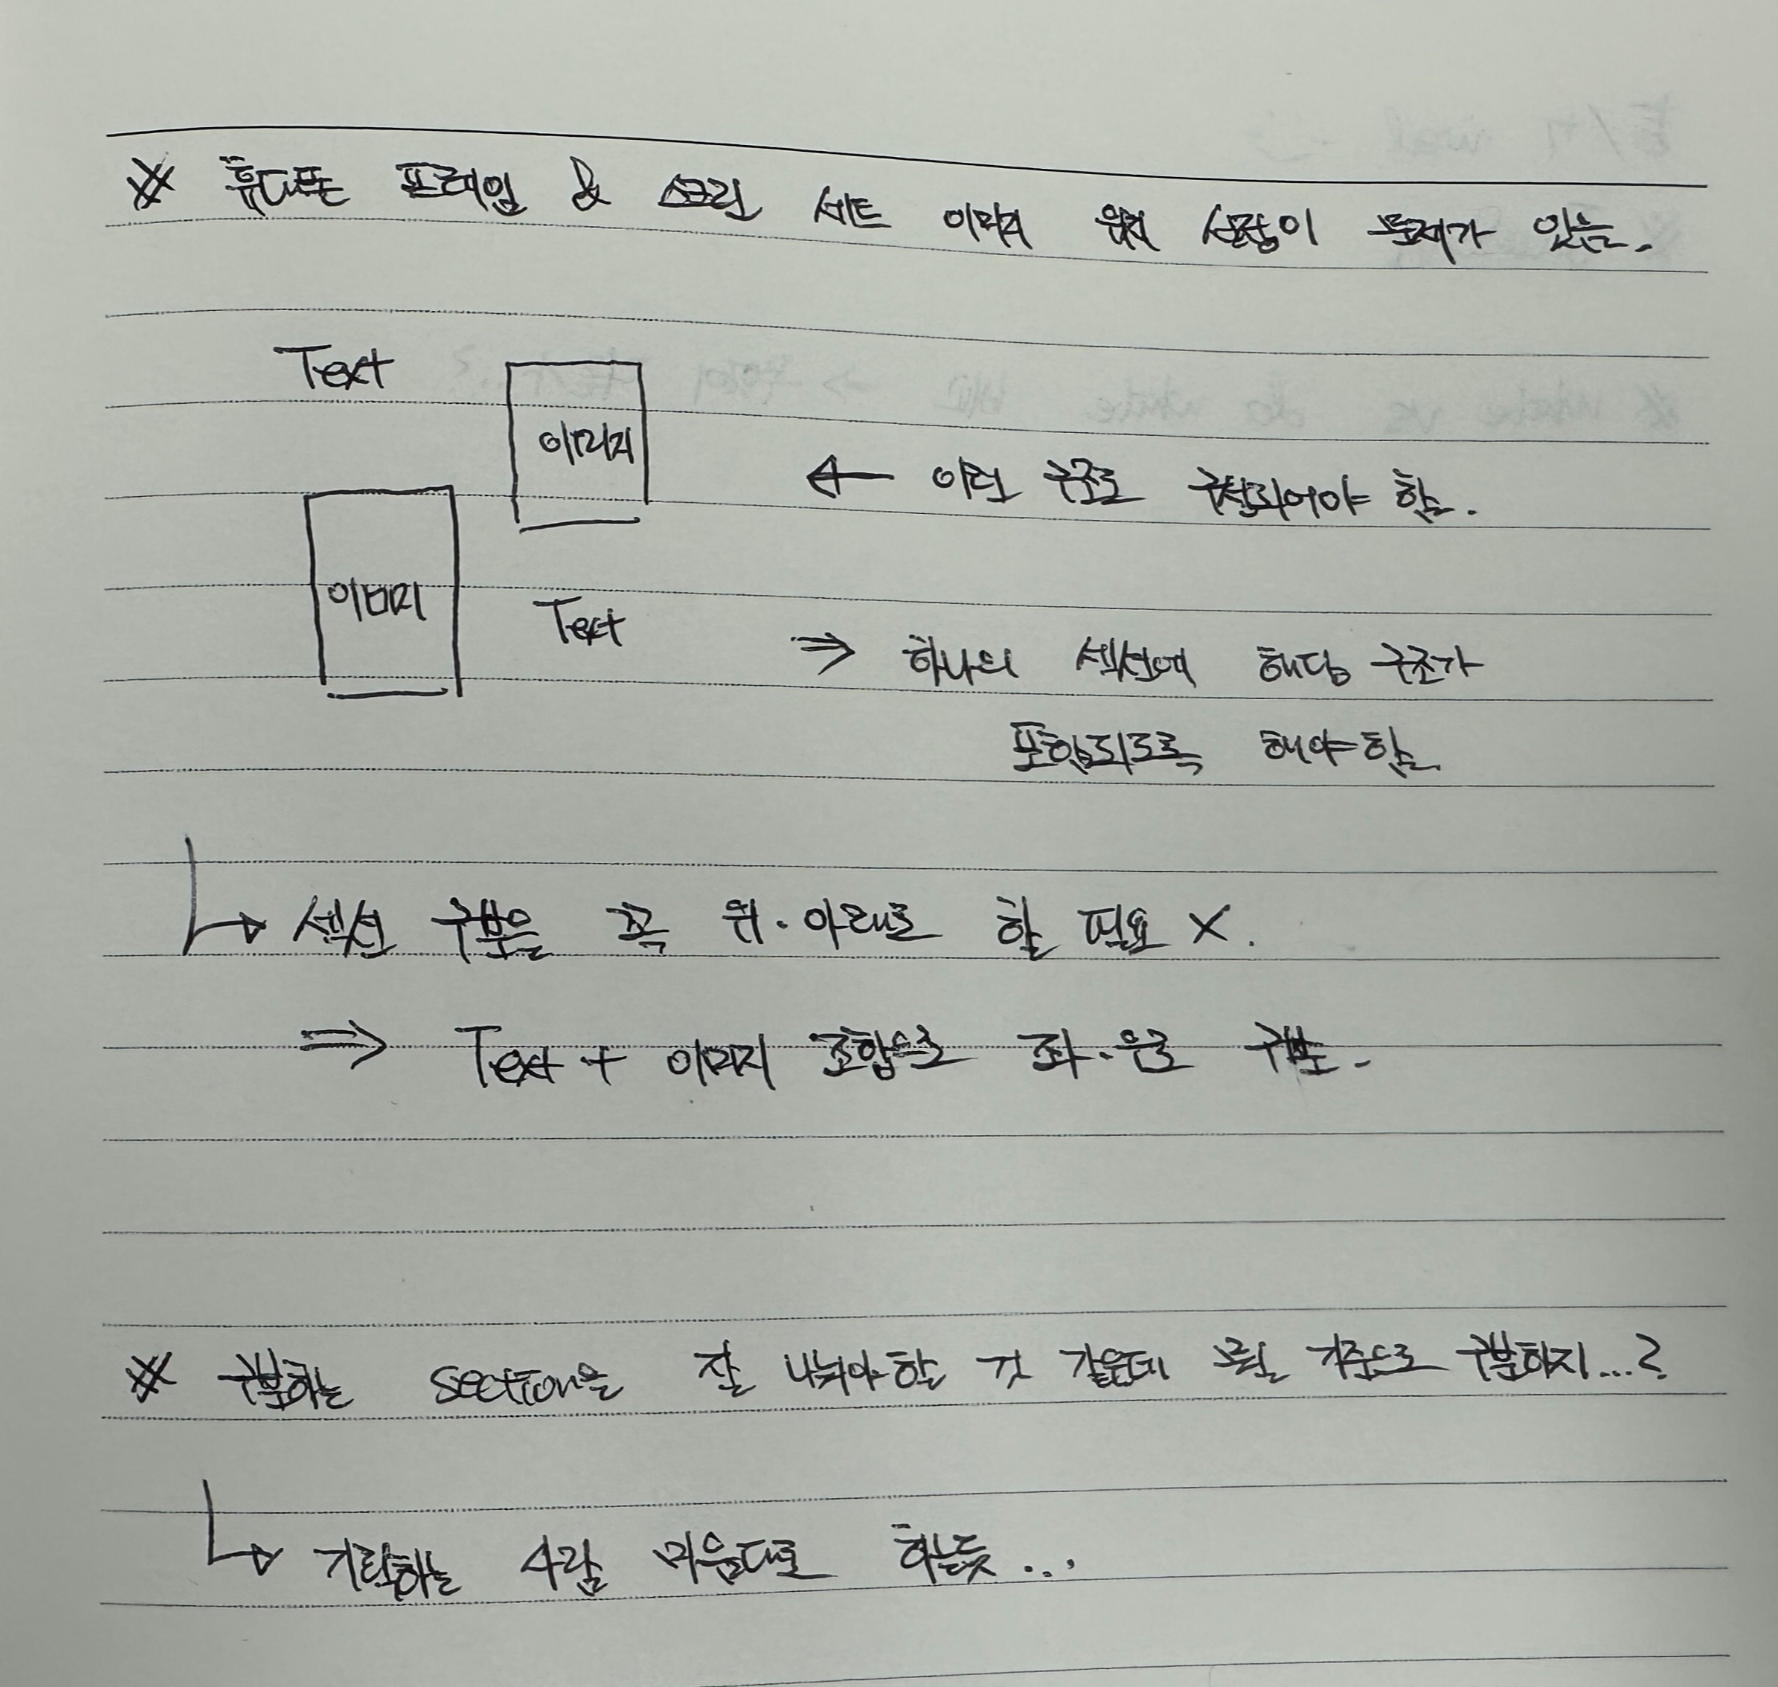 ※ 휴대폰 프레임 & 스크린 세트 이미지 위치 설정이 문제가 있음.
Text
이미지
← 이런 구조로 구현되어야 함.
이미지
Text
⇒ 하나의 섹션에 해당 구조가
포함되도록 해야함.
↳ 섹션 구분을 꼭 위·아래로 할 필요 X.
⇒ Text + 이미지 조합으로 좌·우로 구분.
※ 구분하는 section을 잘 나눠야 할 것 같은데 뭘 기준으로 구분하지...?
↳ 기획하는 사람 마음대로 하는듯...